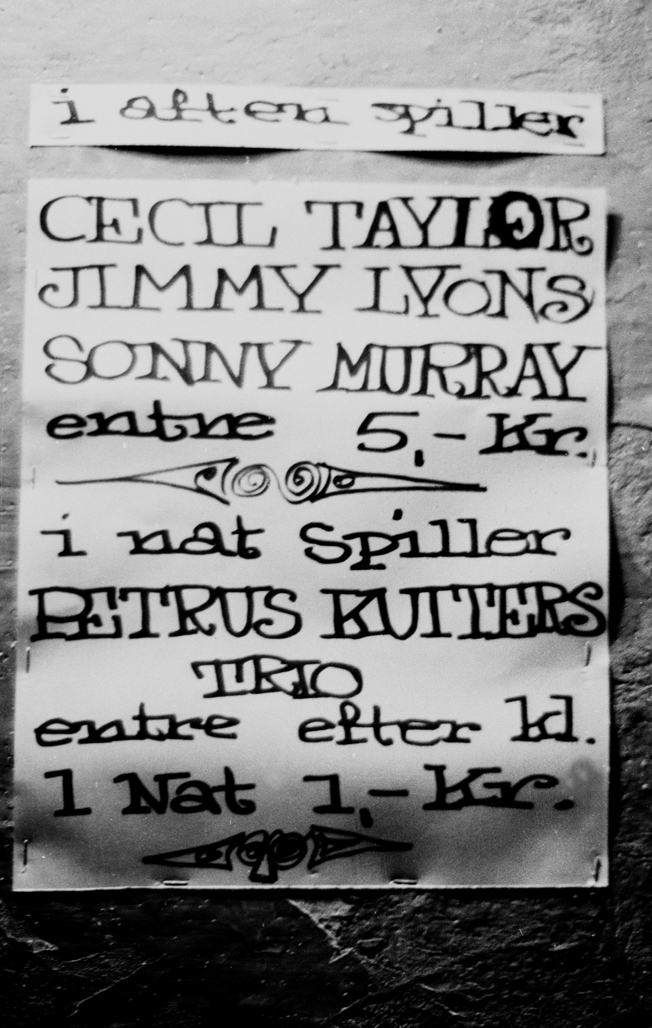 i aften spiller
CECIL TAYLOR
JIMMY LYONS
SONNY MURRAY
entre 5,- Kr.
i nat Spiller
PETRUS KUTTERS
TRIO
entre efter kl.
1 Nat 1,- Kr.